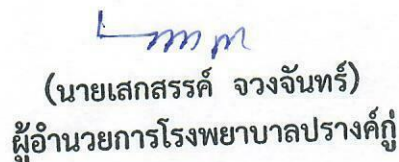 (นายเสกสรรค์ จวงจันทร์)
ผู้อำนวยการโรงพยาบาลปรางค์กู่